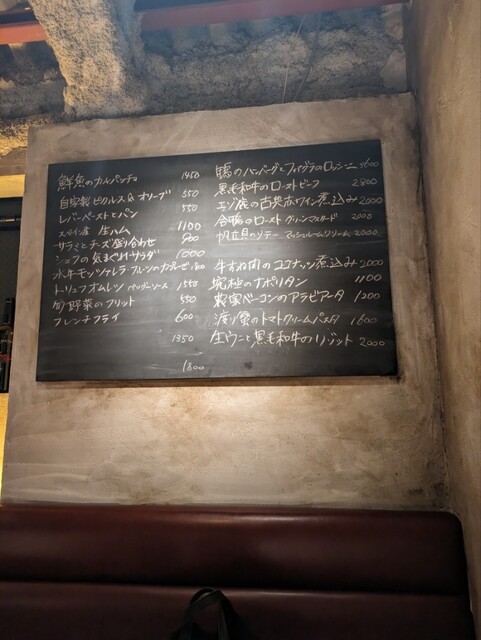 鮮魚のカルパッチョ 1450
自家製ピクルス & オリーブ 550
レバーペーストとパン 550
スペイン産 生ハム 1100
サラミとチーズ盛り合わせ 900
シェフの気まぐれサラダ 1000
水牛モッツァレラ・フルーツのカプレーゼ
トリュフオムレツ ペッパーソース 1550
旬野菜のフリット 550
フレンチフライ 600
1350
1800
鴨のハンバーグとフォアグラのロッシーニ 3600
黒毛和牛のローストビーフ 2800
エゾ鹿の古典赤ワイン煮込み 2000
合鴨のロースト グリーンマスタード 2000
帆立貝のソテー マッシュルームクリーム 2000
牛すね肉のココナッツ煮込み 2000
究極のナポリタン 1100
ベーコンのアラビアータ 1200
渡り蟹のトマトクリームパスタ 1600
生ウニと黒毛和牛のリゾット 2000